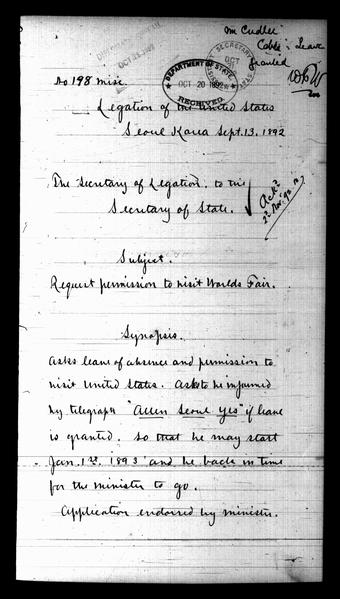 Mr Cridler
Cable: Leave
granted
DEPARTMENT OF STATE
OCT 20 1892
RECEIVED
No 198 misc
Legation of the United States
Seoul Korea Sept. 13. 1892
The Secretary of Legation. to the
Secretary of State.
Ack'd
22 Nov. 92
Subject.
Request permission to visit Worlds Fair.
Synopsis.
Asks leave of absence and permission to
visit United States. Asks to be informed
by telegraph "Allen Seoul Yes" if leave
is granted. So that he may start
Jan. 1st, 1893 and be back in time
for the minister to go.
Application endorsed by minister.